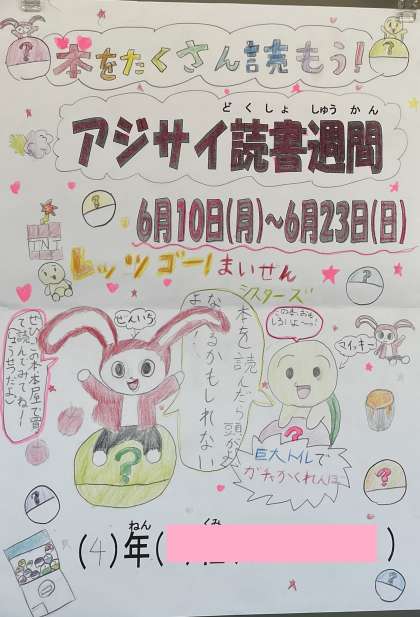 本をたくさん読もう!
どくしょ しゅうかん
アジサイ読書週間
6月10日(月)~6月23日(日)
レッツゴー!まいぜん
シスターズ
ぜんいち
本を読んだら頭がよ
なるかもしれない
よ
この本おも
しろいよ~!
マイッキー
ぜひこの本本屋で買
て読んでみてねー
TNT
巨大トイレで
ガチかくれんぼ
ねん くみ
(4)年( )